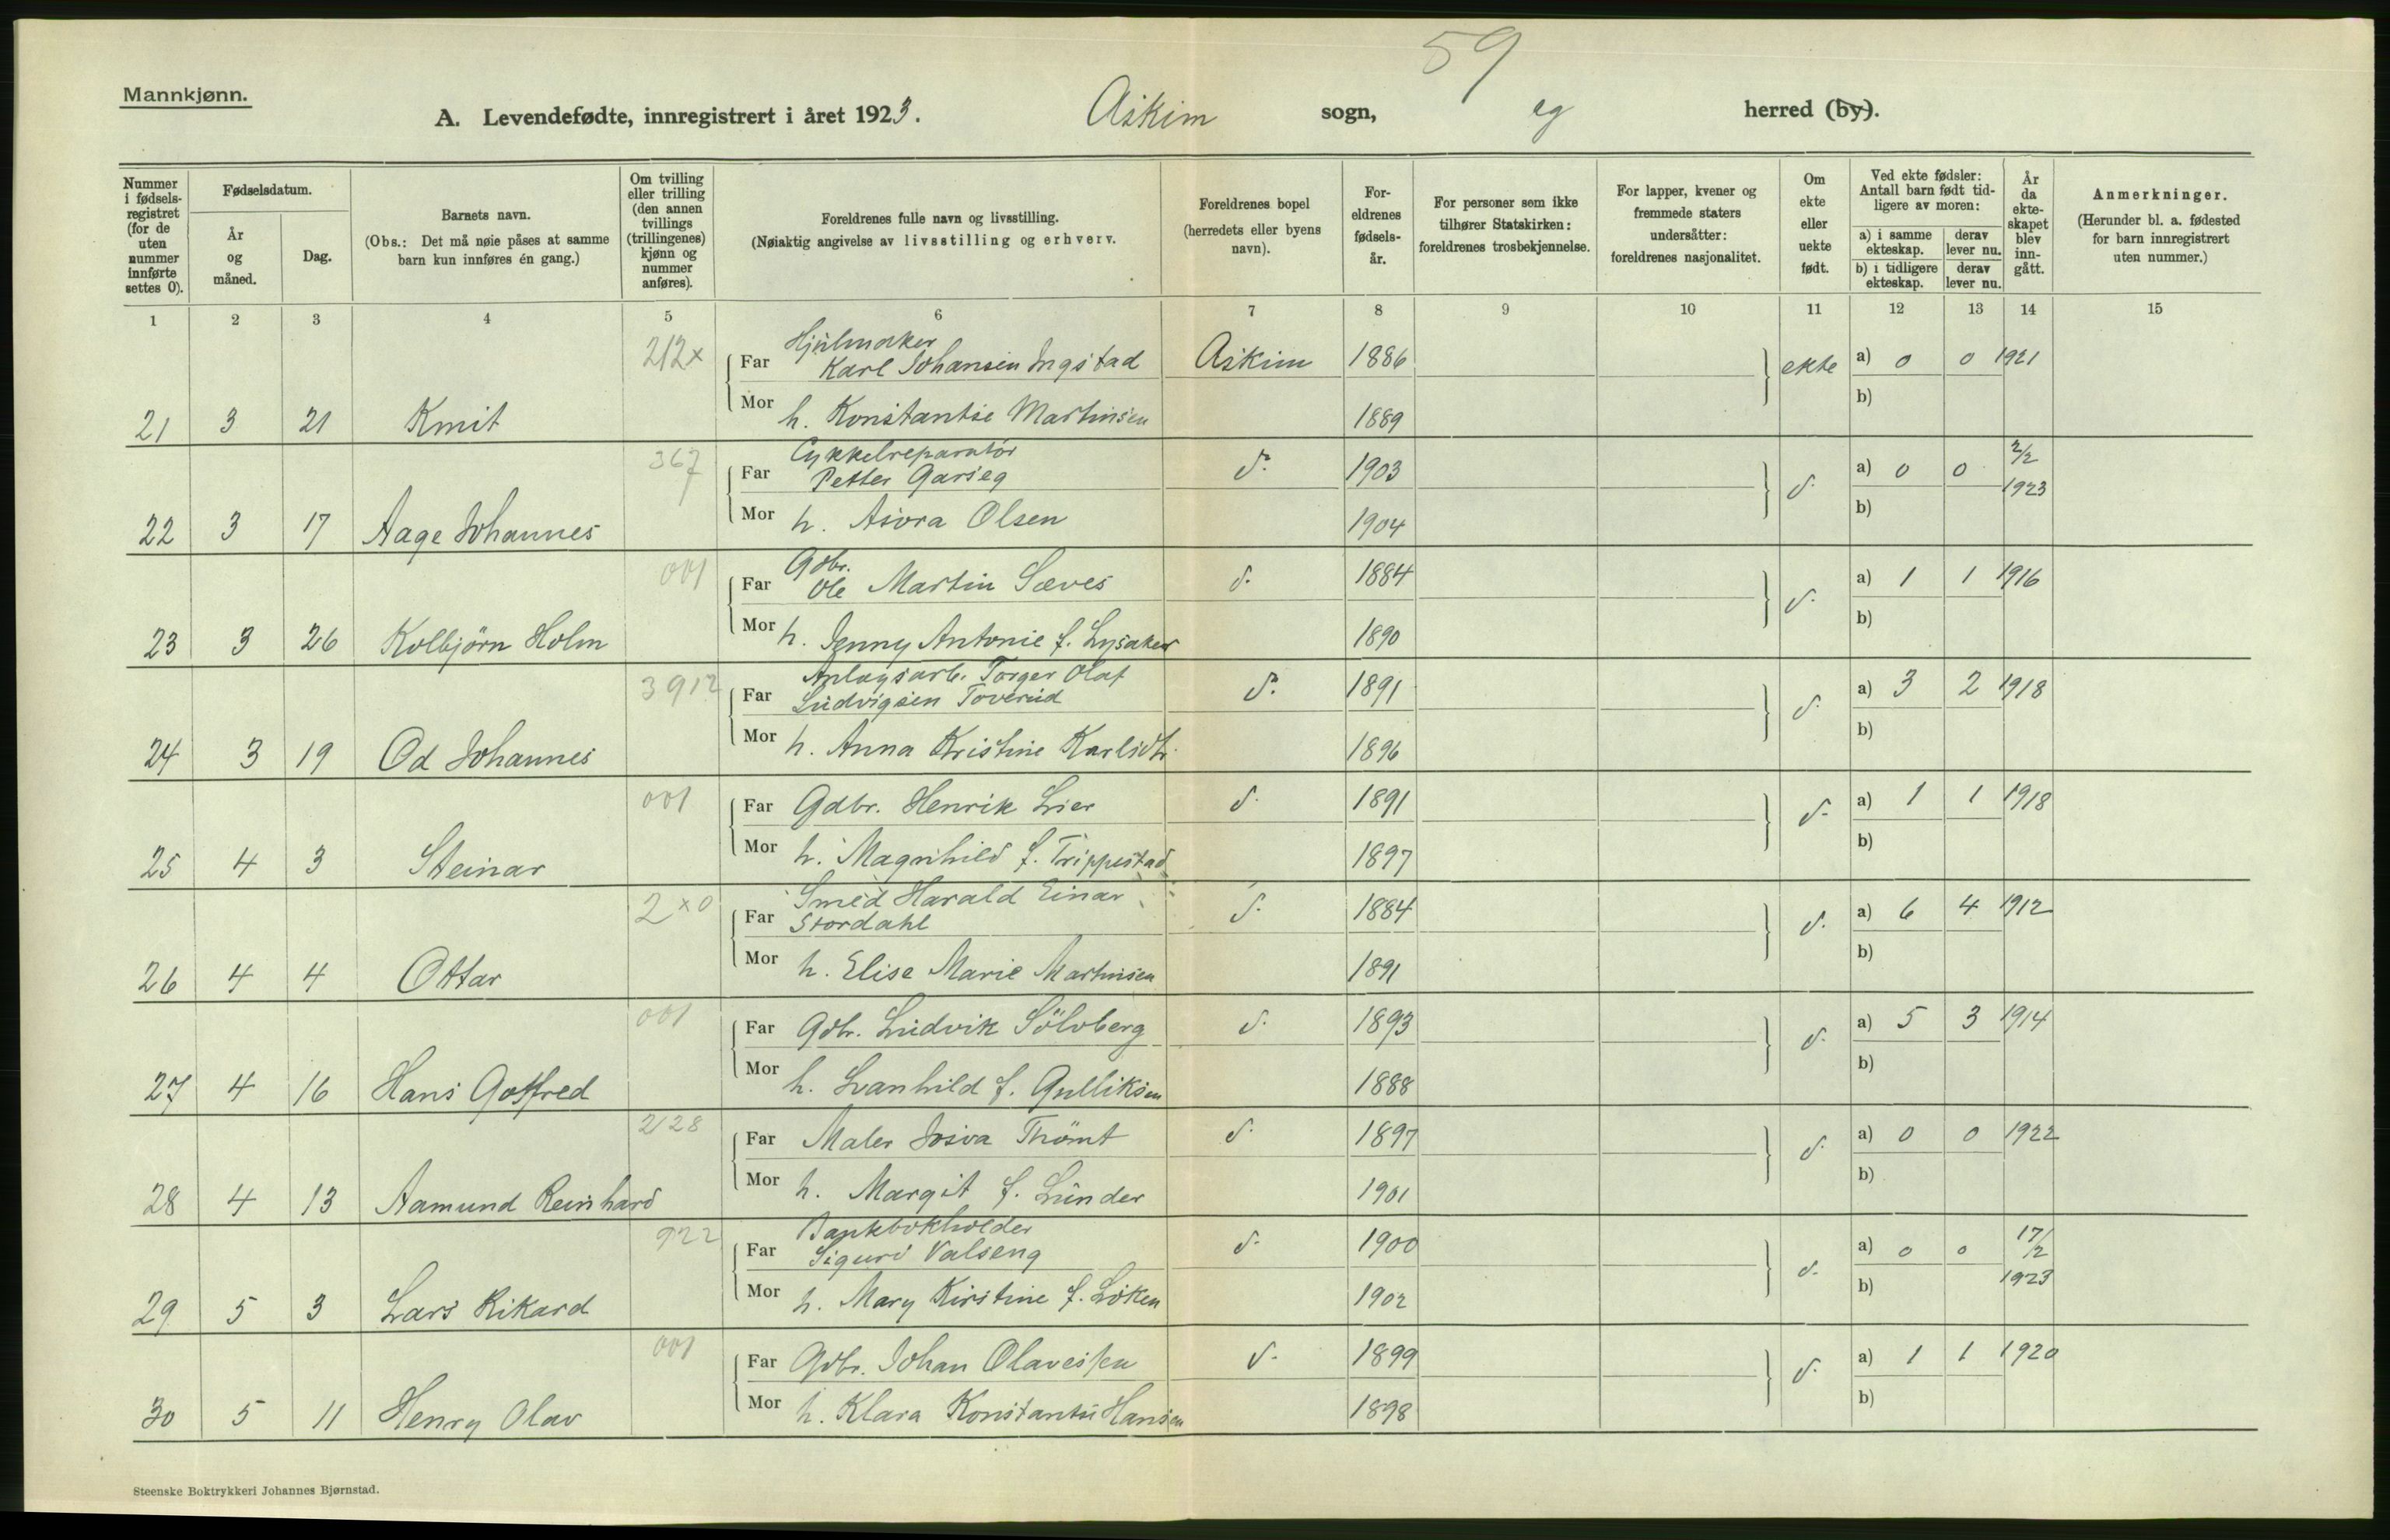 59
Mannkjønn.
A. Levendefødte, innregistrert i året 1923. Askim sogn, og herred (by).
Nummer i fødselsregistret (for de uten nummer innførte settes 0).
Fødselsdatum.
År og måned.
Dag.
Barnets navn.
(Obs.: Det må nøie påses at samme barn kun innføres én gang.)
Om tvilling eller trilling (den annen tvillings (trillingenes) kjønn og nummer anføres).
Foreldrenes fulle navn og livsstilling.
(Nøiaktig angivelse av livsstilling og erhverv.
Foreldrenes bopel (herredets eller byens navn).
Foreldrenes fødselsår.
For personer som ikke tilhører Statskirken: foreldrenes trosbekjennelse.
For lapper, kvener og fremmede staters undersåtter: foreldrenes nasjonalitet.
Om ekte eller uekte født.
Ved ekte fødsler: Antall barn født tidligere av moren:
a) i samme ekteskap.
derav lever nu.
b) i tidligere ekteskap.
derav lever nu.
År da ekteskapet blev inngått.
Anmerkninger.
(Herunder bl. a. fødested for barn innregistrert uten nummer.)
1 2 3 4 5 6 7 8 9 10 11 12 13 14 15
212x Hjulmaker
Far Karl Johansen Ingstad Askim 1886 ekte a) 0 0 1921
21 3 21 Knut Mor h. Konstantse Martinsen 1889 b)
367 Cykkelreparatör
Far Petter Garseg d. 1903 d. a) 0 0 2/2 1923
22 3 17 Aage Johannes Mor h. Asora Olsen 1904 b)
001 Gdbr.
Far Ole Martin Sæves d. 1884 d. a) 1 1 1916
23 3 26 Kolbjörn Holm Mor h. Jenny Antonie f. Lysaker 1890 b)
3912 Anlægsarb. Torger Olaf
Far Ludvigsen Toverud d. 1891 d. a) 3 2 1918
24 3 19 Od Johannes Mor h. Anna Kristine Karlsdtr. 1896 b)
001 Far Gdbr. Henrik Lier d. 1891 d. a) 1 1 1918
25 4 3 Steinar Mor h. Magnhild f. Trippestad 1897 b)
2x0 Smed Harald Einar
Far Stordahl d. 1884 d. a) 6 4 1912
26 4 4 Ottar Mor h. Elise Marie Martinsen 1891 b)
001 Far Gdbr. Ludvik Sölvberg d. 1893 d. a) 5 3 1914
27 4 16 Hans Gotfred Mor h. Svanhild f. Gulliksen 1888 b)
2128 Far Maler Josva Thömt d. 1897 d. a) 0 0 1922
28 4 13 Aamund Reinhard Mor h. Margit f. Lunder 1901 b)
922 Bankbokholder
Far Sigurd Valseng d. 1900 d. a) 0 0 17/2 1923
29 5 3 Lars Rikard Mor h. Mary Kirstine f. Löken 1902 b)
001 Far Gdbr. Johan Olavessen d. 1899 d. a) 1 1 1920
30 5 11 Henry Olav Mor h. Klara Konstantse Hansen 1898 b)
Steenske Boktrykkeri Johannes Bjørnstad.